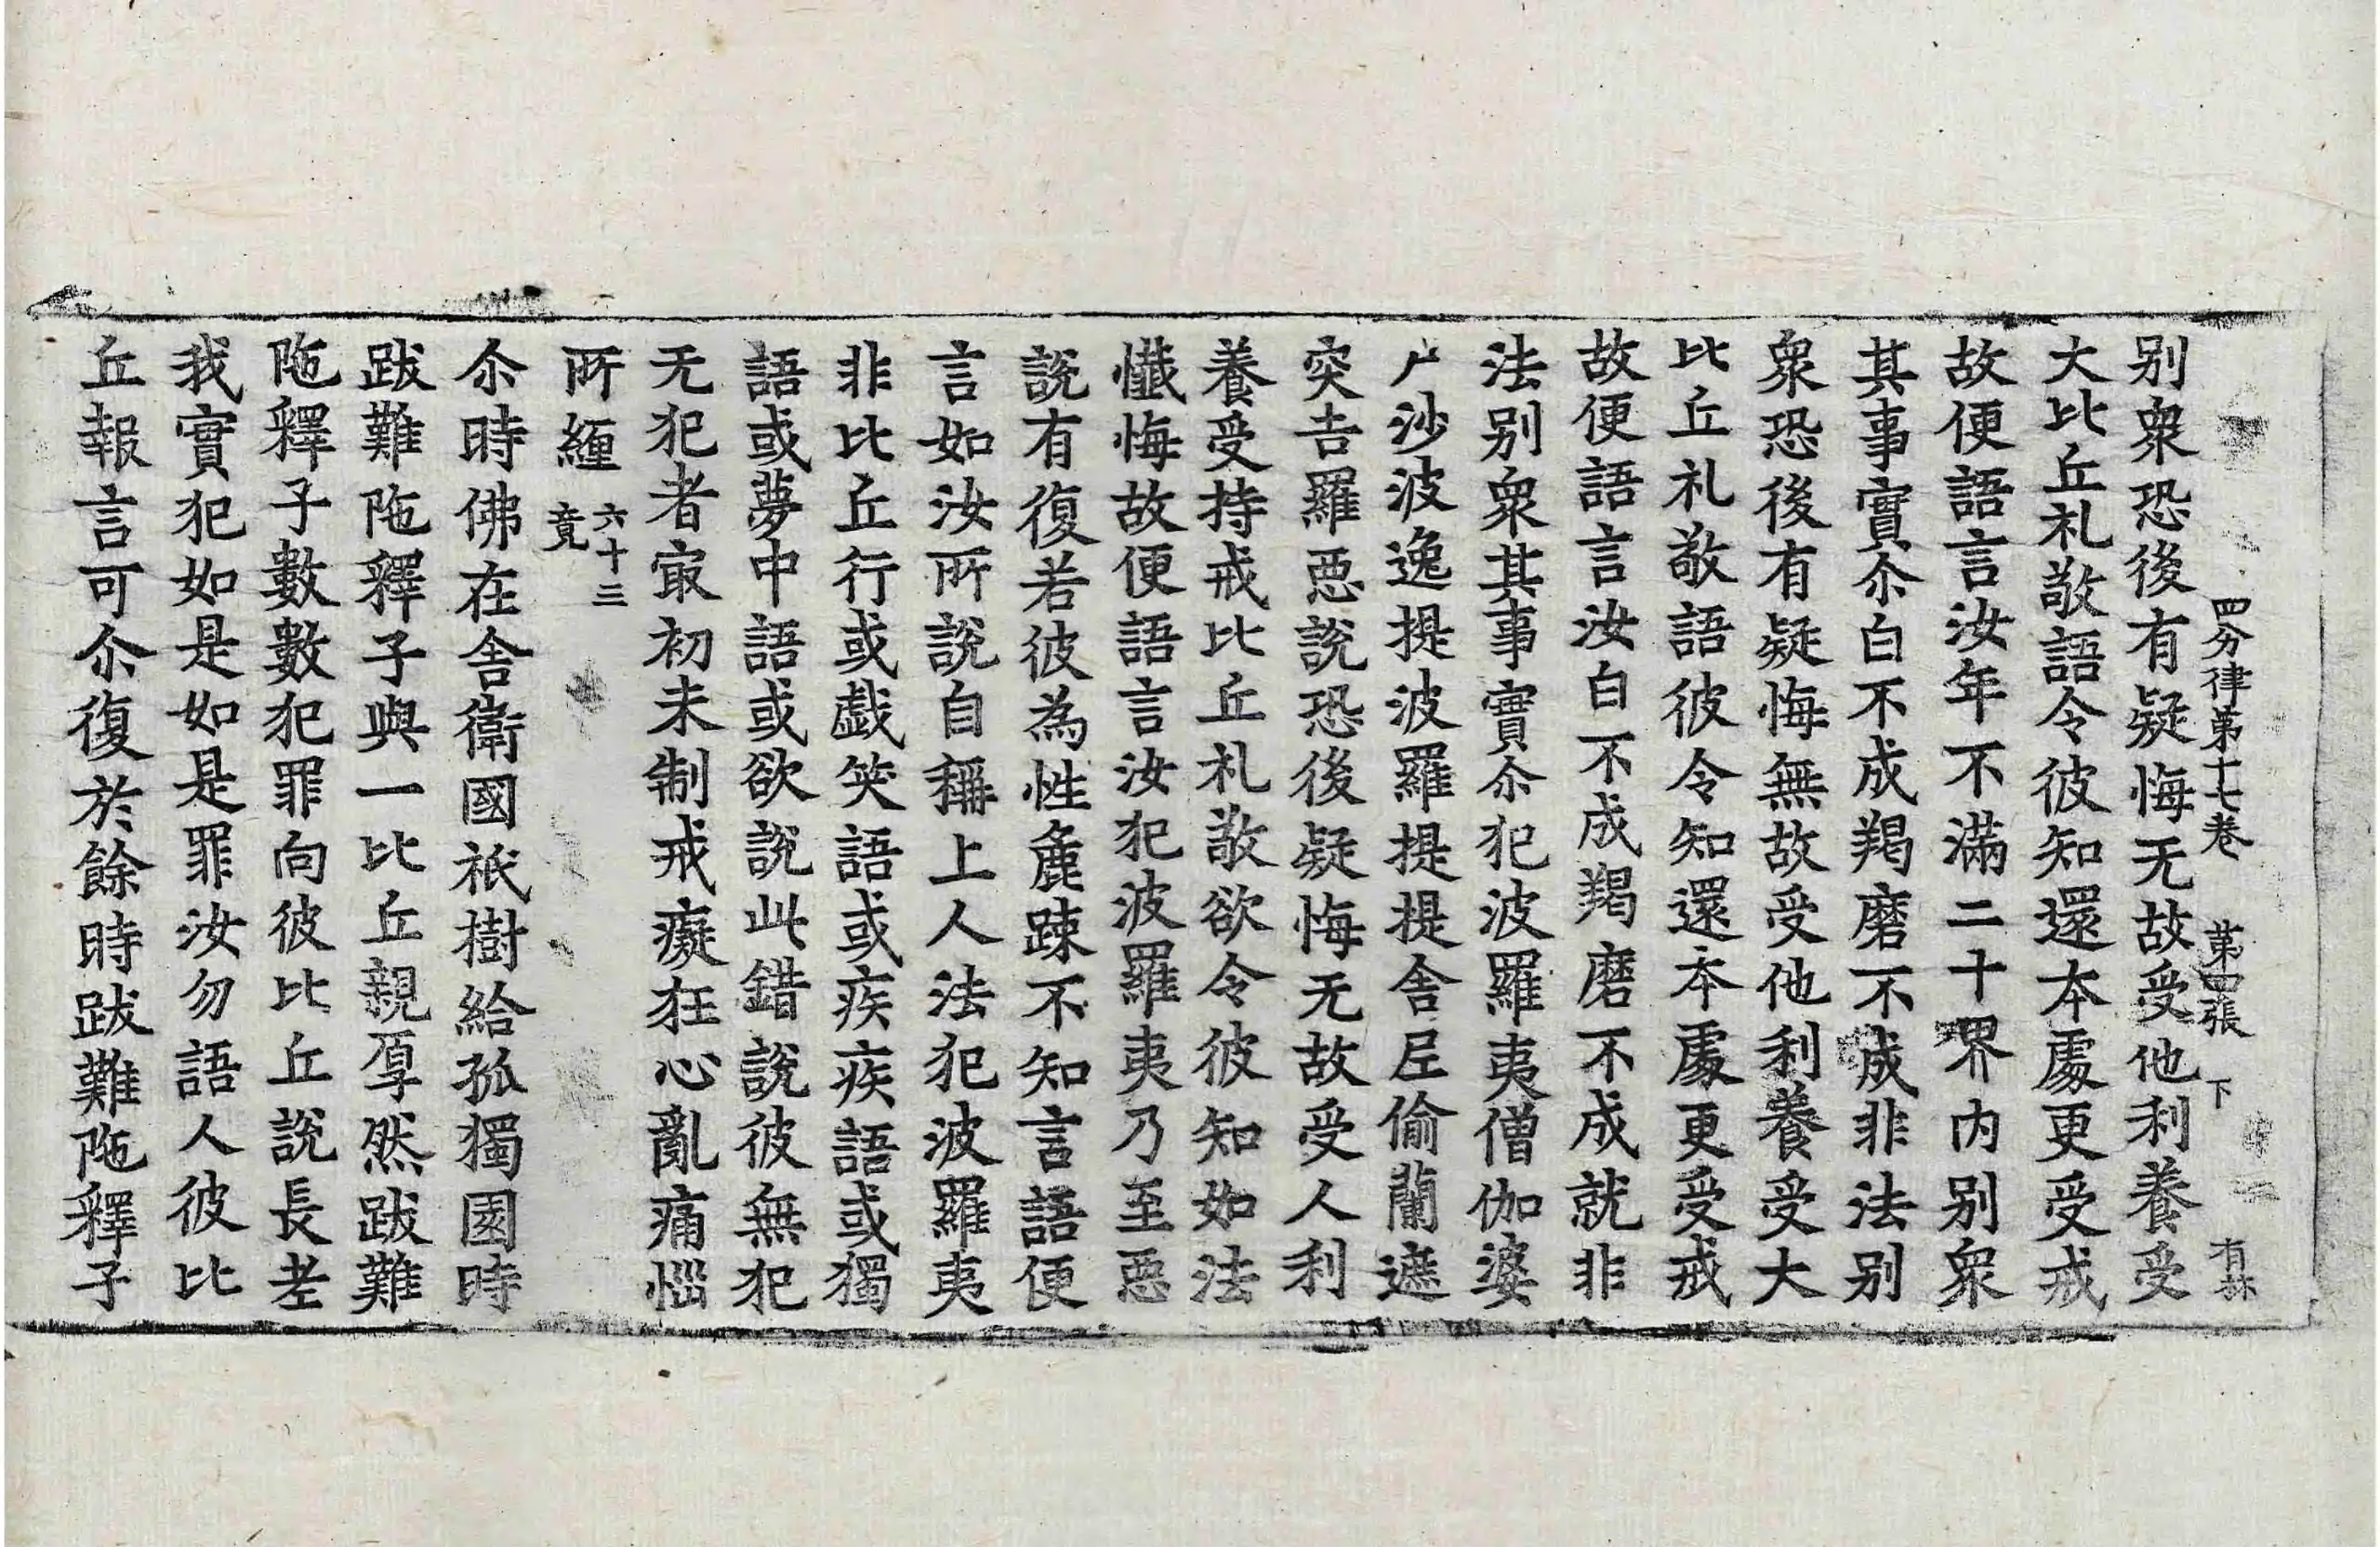 四分律第十七卷 第四張 下
别衆恐後有疑悔无故受他利養受
大比丘礼敬語令彼知還本處更受戒
故便語言汝年不滿二十界内别衆
其事實尒白不成羯磨不成非法别
衆恐後有疑悔無故受他利養受大
比丘礼敬語彼令知還本處更受戒
故便語言汝白不成羯磨不成就非
法别衆其事實尒犯波羅夷僧伽婆
尸沙波逸提波羅提提舍尼偷蘭遮
突吉羅惡說恐後疑悔无故受人利
養受持戒比丘礼敬欲令彼知如法
懺悔故便語言汝犯波羅夷乃至惡
說有復若彼為性麁踈不知言語便
言如汝所說自稱上人法犯波羅夷
非比丘行或戱笑語或疾疾語或獨
語或夢中語或欲說此錯說彼無犯
无犯者冣初未制戒癡狂心亂痛惱
所纏 六十三竟
尒時佛在舍衛國祇樹給孤獨園時
跋難陁釋子與一比丘親厚然跋難
陁釋子數數犯罪向彼比丘說長老
我實犯如是如是罪汝勿語人彼比
丘報言可尒復於餘時跋難陁釋子